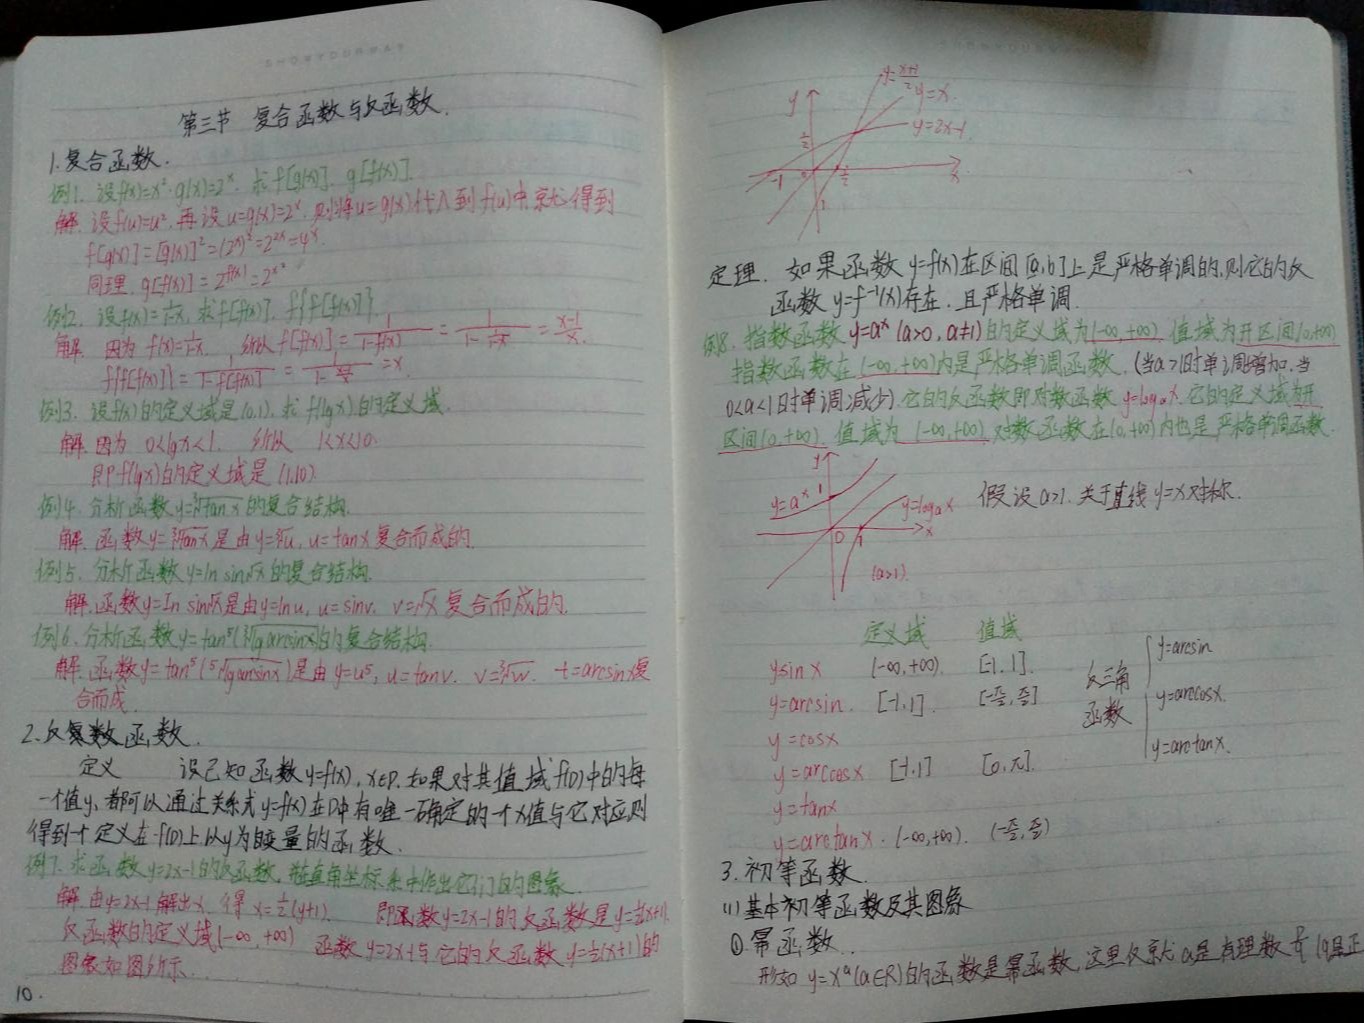 第三节 复合函数与反函数.
1.复合函数.
例1. 设f(x)=x². g(x)=2ˣ. 求f[g(x)]. g[f(x)].
解. 设f(u)=u². 再设u=g(x)=2ˣ. 则将u=g(x)代入到f(u)中,就能得到
f[g(x)]=[g(x)]²=(2ˣ)²=2²ˣ=4ˣ.
同理. g[f(x)]=2^f(x)=2^x²
例2. 设f(x)=1/(1-x), 求f[f(x)]. f{f[f(x)]}.
解. 因为 f(x)=1/(1-x). 所以 f[f(x)]=1/(1-f(x))=1/(1-1/(1-x))=(x-1)/x.
f{f[f(x)]}=1/(1-f[f(x)])=1/(1-(x-1)/x)=x
例3. 设f(x)的定义域是(0,1). 求f(lgx)的定义域.
解. 因为 0<lgx<1. 所以 1<x<10.
即f(lgx)的定义域是(1,10).
例4. 分析函数y=∛tanx的复合结构.
解. 函数y=∛tanx是由y=∛u, u=tanx复合而成的.
例5. 分析函数y=ln sin√x的复合结构.
解. 函数y=ln sin√x是由y=lnu, u=sinv. v=√x复合而成的.
例6. 分析函数y=tan⁵(∛lg arcsinx)的复合结构.
解. 函数y=tan⁵(⁵√lg arcsinx)是由y=u⁵, u=tanv. v=∛w. t=arcsinx复
合而成.
2.反 数函数.
定义 设已知函数y=f(x), x∈D. 如果对其值域f(D)中的每
一个值y, 都可以通过关系式y=f(x)在D中有唯一确定的一个x值与它对应则
得到一个定义在f(D)上以y为自变量的函数.
例7. 求函数y=2x-1的反函数,在直角坐标系中作出它们的图象.
解. 由y=2x-1解出x, 得 x=½(y+1). 即函数y=2x-1的反函数是y=½(x+1).
反函数的定义域(-∞,+∞) 函数y=2x-1与它的反函数y=½(x+1)的
图象如图所示.
10.
y=(x+1)/2
y=x.
y=2x-1
y
½
-1 0 ½ x
1
定理. 如果函数y=f(x)在区间[a,b]上是严格单调的,则它的反
函数y=f⁻¹(x)存在. 且严格单调.
例8. 指数函数y=aˣ(a>0, a≠1)的定义域为(-∞,+∞). 值域为开区间(0,+∞)
指数函数在(-∞,+∞)内是严格单调函数.(当a>1时单调增加. 当
0<a<1时单调减少). 它的反函数即对数函数y=logₐx. 它的定义域为开
区间(0,+∞). 值域为(-∞,+∞). 对数函数在(0,+∞)内也是严格单调函数.
y
y=aˣ 1
y=logₐx
0 1 x
(a>1).
假设a>1. 关于直线y=x对称.
定义域 值域
ysin x (-∞,+∞). [-1,1].
y=arcsin. [-1,1]. [-π/2,π/2]
y=cosx
y=arccosx. [-1,1] [0,π].
y=tanx
y=arctanx. (-∞,+∞). (-π/2,π/2)
反三角函数
y=arcsin
y=arccosx.
y=arctanx.
3.初等函数.
(1)基本初等函数及其图象
①.幂函数.
形如y=xᵃ(a∈R)的函数是幂函数.这里仅就a是有理数 (q是正